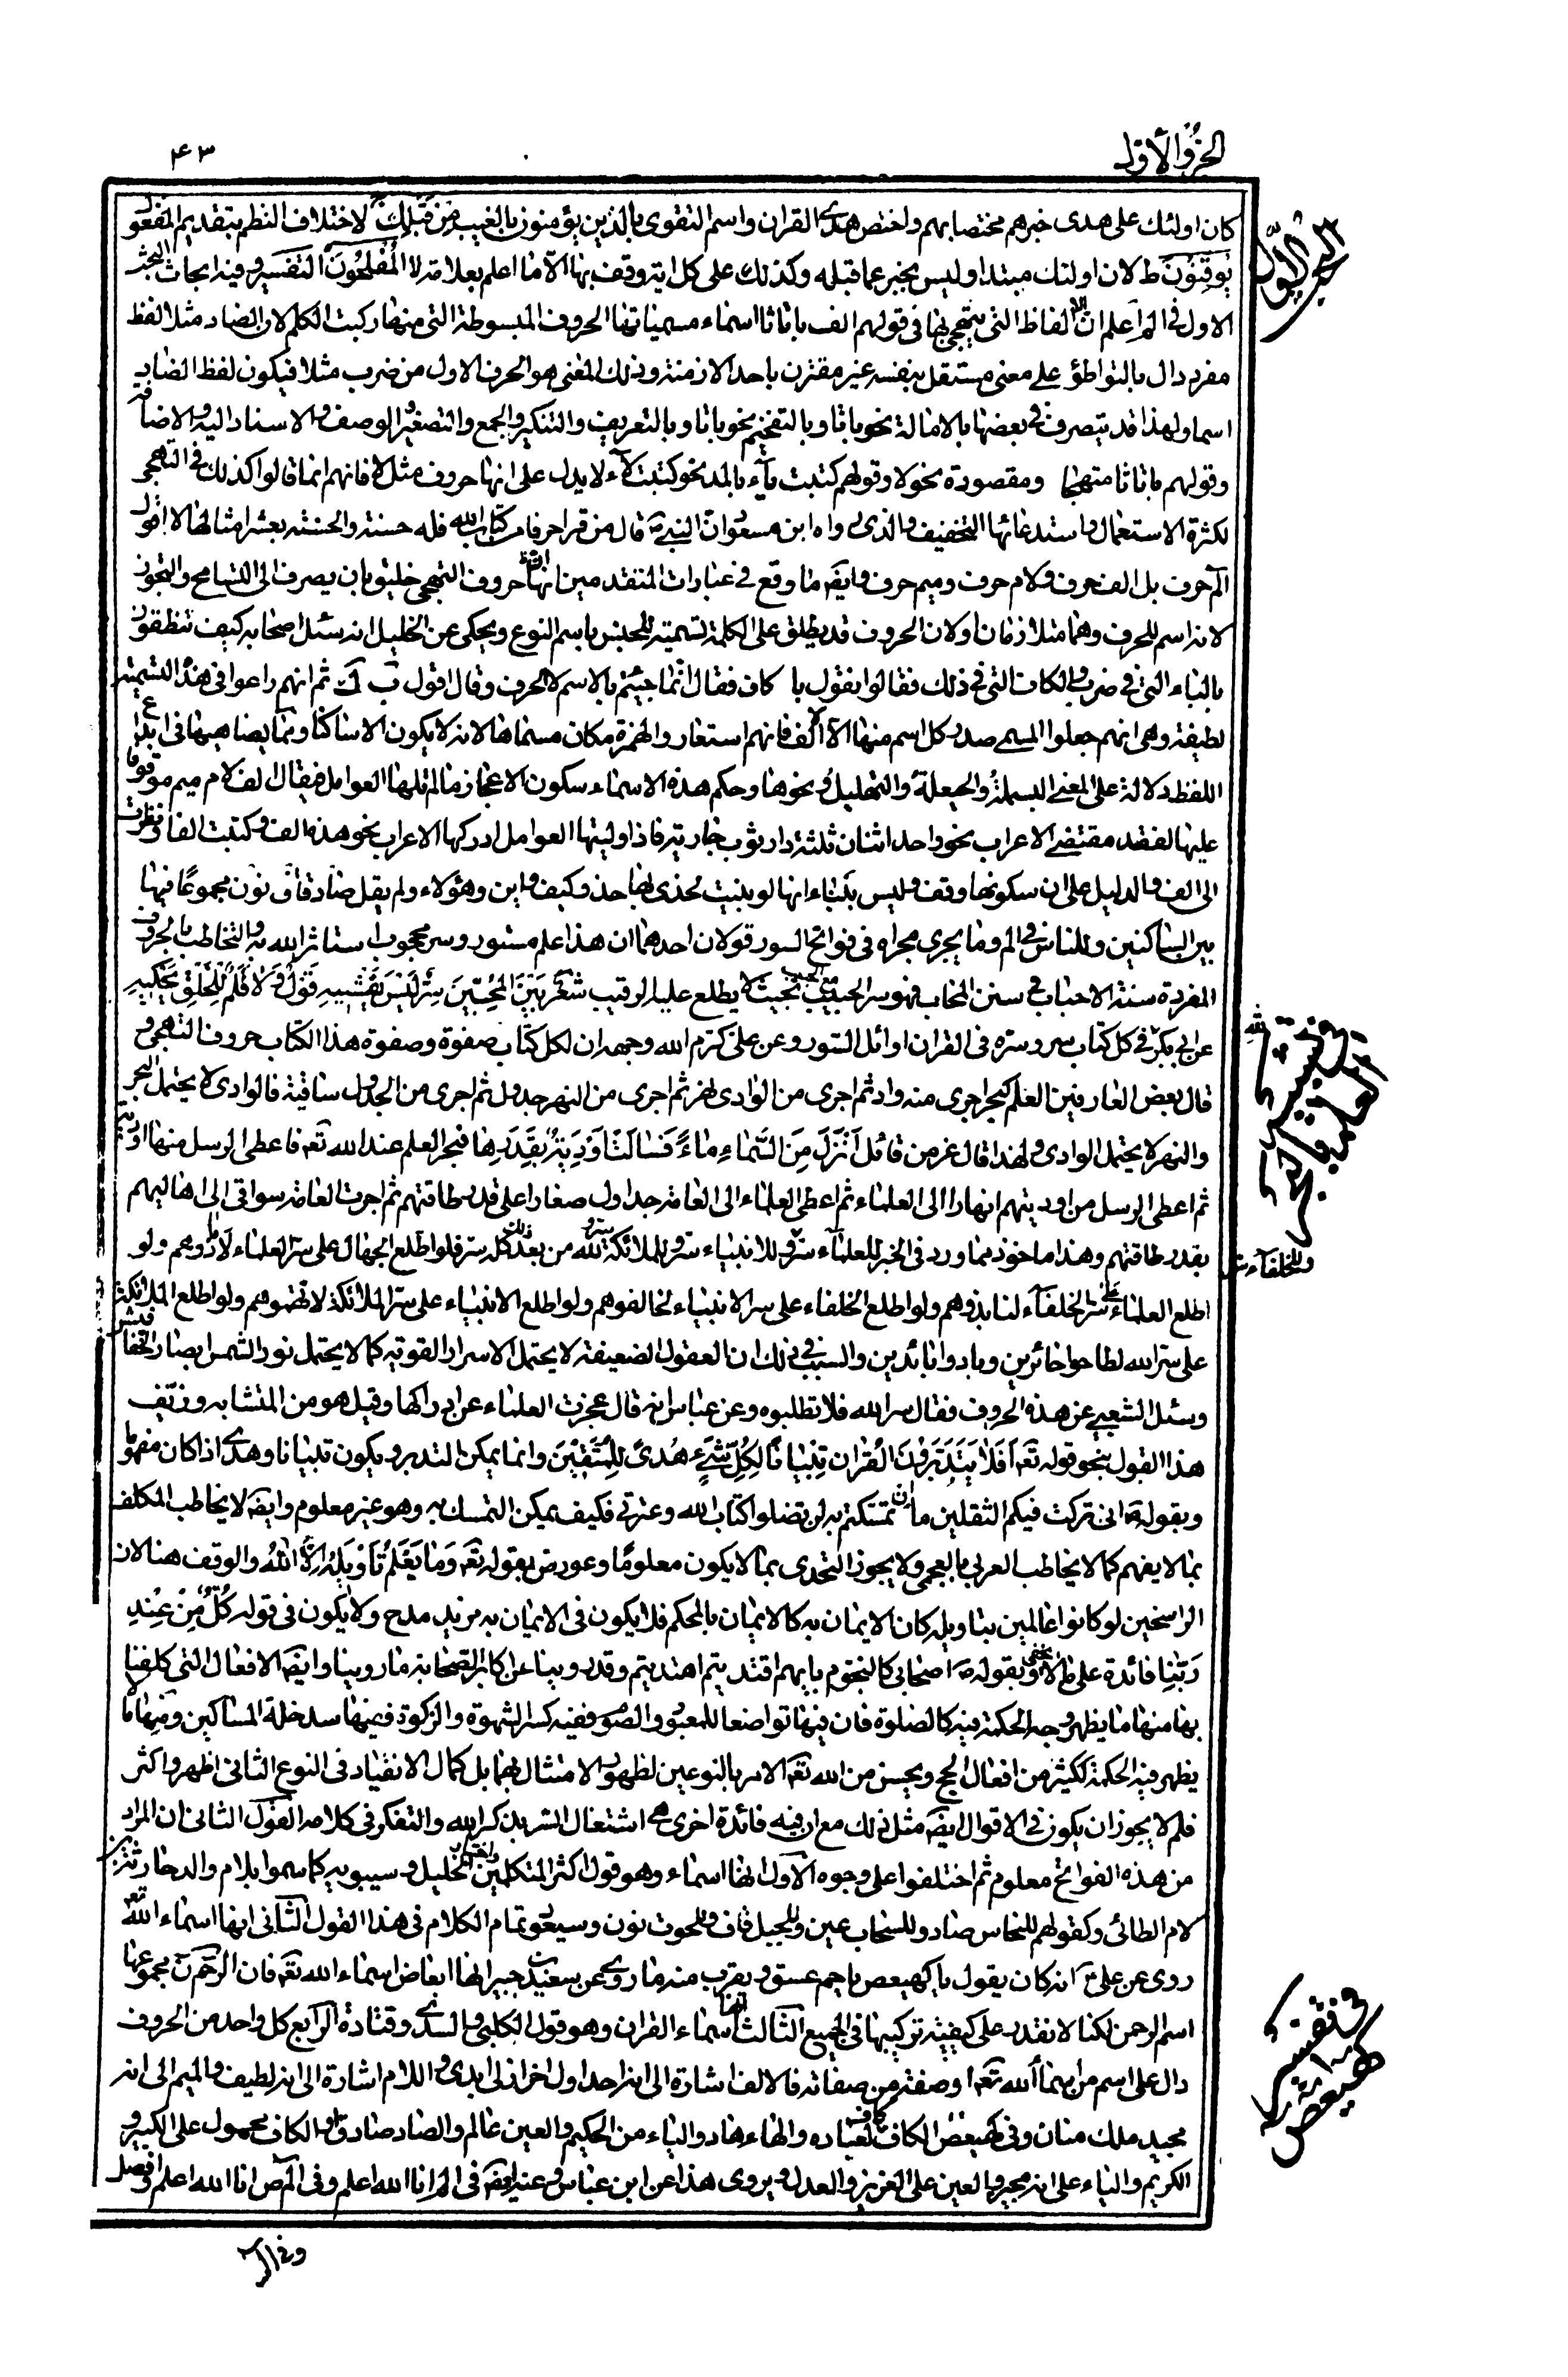 الجزؤ الأول
۴۳
كان اولئك على هدى خبرهم مختصا بهم واختص هدى القران واسم التقوى بالذين يؤمنون بالغيب من قبلك لاختلاف النظم بتقديم المفعول
يوقنون ط لان اولئك مبتدا وليس بخبر عما قبله وكذلك على كل اية وقف بها الا ما اعلم بعلامة لا المفلحون التفسير وفيه ابحاث البحث
الاول فى الم اعلم ان الالفاظ التى يتهجى بها فى قولهم الف با تا ثا اسماء مسمياتها الحروف المبسوطة التى منها ركبت الكلم لان الضاد مثلا لفظ
مفرد دال بالتواطؤ على معنى مستقل بنفسه غير مقترن باحد الازمنة وذلك المعنى هو الحرف الاول من ضرب مثلا فيكون لفظ الضاد
اسما ولهذا قد يتصرف فى بعضها بالامالة نحو با تا وبالتفخيم نحو با تا وبالتعريف والتنكير والجمع والتصغير والوصف والاسناد اليه والاضافة
وقولهم با تا ثا متهجاة ومقصورة نحو لا وقولهم كتبت باء بالمد نحو كتبت لاء لا يدل على انها حروف مثل لا فانهم انما قالوا كذلك فى التهجى
لكثرة الاستعمال واستدعائها التخفيف والذى رواه ابن مسعود ان النبى ص قال من قرا حرفا من كتاب الله فله حسنة والحسنة بعشر امثالها لا اقول
الم حرف بل الف حرف ولام حرف وميم حرف وايضا ما وقع فى عبارات المتقدمين انها حروف التهجى خليق بان يصرف الى التسامح والتجوز
لانه اسم للحرف وهما متلازمان او لان الحروف قد يطلق على الكلمة تسمية للجنس باسم النوع ويحكى عن الخليل انه سئل اصحابه كيف تنطقون
بالباء التى فى ضرب والكاف التى فى ذلك فقالوا نقول با كاف فقال انما جئتم بالاسم لا الحرف وقال اقول ب ك ثم انهم راعوا فى هذه التسمية
لطيفة وهى انهم جعلوا المسمى صدر كل اسم منها الا الالف فانهم استعاروا الهمزة مكان مسماها لانه لا يكون الا ساكنا ومما يضاهيها فى ايداع
اللفظ دلالة على المعنى البسملة والحيعلة والتهليل ونحوها وحكم هذه الاسماء سكون الاعجاز ما لم تلها العوامل فيقال الف لام ميم موقوفا
عليها لفقد مقتضى الاعراب نحو واحد اثنان ثلثة دار ثوب جارية فاذا وليتها العوامل ادركها الاعراب نحو هذه الف وكتبت الفا ونظرت
الى الف والدليل على ان سكونها وقف وليس ببناء انها لو بنيت لحذى بها حذو كيف واين وهؤلاء ولم يقل صاد قاف نون مجموعا فيها
بين الساكنين وللناس فى الم وما يجرى مجراه فى فواتح السور قولان احدهما ان هذا علم مستور وسر محجوب استاثر الله به والتخاطب بالحروف
المفردة سنة الاحباب فى سنن المحاب فهو سر الحبيب مع الحبيب بحيث لا يطلع عليه الرقيب شعر بين المحبين سر ليس يفشيه قول ولا قلم للخلق يحكيه
عن ابى بكر فى كل كتاب سر وسره فى القران اوائل السور وعن على كرم الله وجهه ان لكل كتاب صفوة وصفوة هذا الكتاب حروف التهجى و
قال بعض العارفين العلم كبحر اجرى منه واد ثم اجرى من الوادى نهر ثم اجرى من النهر جدول ثم اجرى من الجدول ساقية فالوادى لا يحتمل البحر
والنهر لا يحتمل الوادى ولهذا قال عز من قائل انزل من السماء ماء فسالت اودية بقدرها فبحر العلم عند الله تعه فاعطى الرسل منها اودية
ثم اعطى الرسل من اوديتهم انهارا الى العلماء ثم اعطى العلماء الى العامة جداول صغارا على قدر طاقتهم ثم اجرت العامة سواقى الى اهاليهم
بقدر طاقتهم وهذا ماخوذ مما ورد فى الخبر للعلماء سر وللانبياء سر وللملائكة سر ولله من بعد ذلك كله سر فلو اطلع الجهال على سر العلماء لابادوهم ولو
وللخلفاء سر
اطلع العلماء على سر الخلفاء لنابذوهم ولو اطلع الخلفاء على سر الانبياء لخالفوهم ولو اطلع الانبياء على سر الملائكة لاتهموهم ولو اطلع الملائكة
على سر الله لطاحوا حائرين وبادوا بائدين والسبب فى ذلك ان العقول الضعيفة لا يحتمل الاسرار القوية كما لا يحتمل نور الشمس ابصار الخفافيش
وسئل الشعبى عن هذه الحروف فقال سر الله فلا تطلبوه وعن عباس انه قال عجزت العلماء عن ادراكها وقيل هو من المتشابه وزيف
هذا القول بنحو قوله تعه افلا يتدبرون القران تبيانا لكل شىء هدى للمتقين وانما يمكن التدبر ويكون تبيانا وهدى اذا كان مفهوما
وبقوله ص انى تركت فيكم الثقلين ما ان تمسكتم به لن تضلوا كتاب الله وعترتى فكيف يمكن التمسك به وهو غير معلوم وايضه لا يخاطب المكلف
بما لا يفهم كما لا يخاطب العربى بالعجمى ولا يجوز التحدى بما لا يكون معلوما وعورض بقوله تعه وما يعلم تاويله الا الله والوقف هنا لان
الراسخين لو كانوا عالمين بتاويله كان الايمان به كالايمان بالمحكم فلا يكون فى الايمان به مزيد مدح ولا يكون فى قوله كل من عند
ربنا فائدة على ما لا يخفى وبقوله ص اصحابى كالنجوم بايهم اقتديتم اهتديتم وقد روينا عن اكابر الصحابة ما روينا وايضه الافعال التى كلفنا
بها منها ما يظهر وجه الحكمة فيه كالصلوة فان فيها تواضعا للمعبود والصوم ففيه كسر الشهوة والزكوة ففيها سد خلة المساكين ومنها ما لا
يظهر فيه الحكمة ككثير من افعال الحج ويحسن من الله تعه الامر بالنوعين لظهور الامتثال بهما بل كمال الانقياد فى النوع الثانى اظهر واكثر
فلم لا يجوز ان يكون فى الاقوال ايضه مثل ذلك مع ان فيه فائدة اخرى هى اشتغال السر بذكر الله والتفكر فى كلامه القول الثانى ان المراد
من هذه الفواتح معلوم ثم اختلفوا على وجوه الاول انها اسماء وهو قول اكثر المتكلمين واختيار الخليل وسيبويه كما سموا بلام والد حارثة بن
لام الطائى وكقولهم للنحاس صاد وللسحاب عين وللجبل قاف وللحوت نون وسيعود تمام الكلام فى هذا القول الثانى انها اسماء الله تعه
روى عن على ع انه كان يقول يا كهيعص يا حم عسق ويقرب منه ما روى عن سعيد بن جبير انها ابعاض اسماء الله تعه فان الر حم ن مجموعها
اسم الرحمن لكنا لا نقدر على كيفية تركيبها فى الجميع الثالث انها اسماء القران وهو قول الكلبى والسدى وقتادة الرابع كل واحد من الحروف
دال على اسم من اسماء الله تعه او صفة من صفاته فالالف اشارة الى انه احد اول اخر ازلى ابدى واللام اشارة الى انه لطيف والميم الى انه
مجيد ملك منان وفى كهيعص الكاف كاف لعباده والهاء هاد والياء من الحكيم والعين عالم والصاد صادق او الكاف محمول على الكبير و
الكريم والياء على انه مجير والعين على العزيز والعدل ويروى هذا عن ابن عباس وعنه ايضه فى الم انا الله اعلم وفى المص انا الله اعلم وافصل
وفى الر
فى تفسير
كهيعص